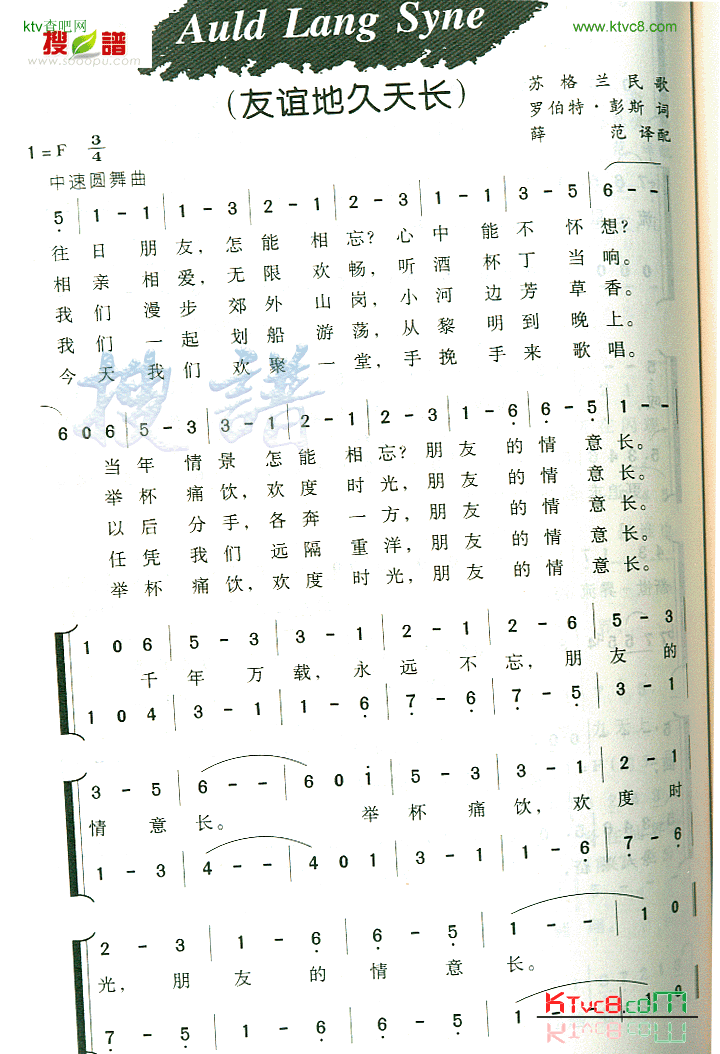 ktv查吧网
www.ktvc8.com
搜譜
www.sooopu.com
Auld Lang Syne
(友谊地久天长)
苏格兰民歌
罗伯特·彭斯 词
薛范译配
1=F 3/4
中速圆舞曲
5 | 1 - 1 | 1 - 3 | 2 - 1 | 2 - 3 | 1 - 1 | 3 - 5 | 6 - -
往日朋友,怎能相忘?心中能不怀想?
相亲相爱,无限欢畅,听酒杯丁当响。
我们漫步郊外山岗,小河边芳草香。
我们一起划船游荡,从黎明到晚上。
今天我们欢聚一堂,手挽手来歌唱。
搜譜
6 0 6 | 5 - 3 | 3 - 1 | 2 - 1 | 2 - 3 | 1 - 6 | 6 - 5 | 1 - -
当年情景怎能相忘?朋友的情意长。
举杯痛饮,欢度时光,朋友的情意长。
以后分手,各奔一方,朋友的情意长。
任凭我们远隔重洋,朋友的情意长。
举杯痛饮,欢度时光,朋友的情意长。
1 0 6 | 5 - 3 | 3 - 1 | 2 - 1 | 2 - 6 | 5 - 3
千年万载,永远不忘,朋友的
1 0 4 | 3 - 1 | 1 - 6 | 7 - 6 | 7 - 5 | 3 - 1
3 - 5 | 6 - - | 6 0 i | 5 - 3 | 3 - 1 | 2 - 1
情意长。举杯痛饮,欢度时
1 - 3 | 4 - - | 4 0 1 | 3 - 1 | 1 - 6 | 7 - 6
2 - 3 | 1 - 6 | 6 - 5 | 1 - - | 1 0
光,朋友的情意长。
7 - 5 | 1 - 6 | 6 - 5 | 1
KTVc8.com